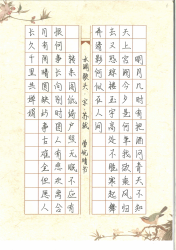 明月几时有把酒问青天不知
天上宫阙今夕是何年我欲乘风归
去又恐琼楼玉宇高处不胜寒起舞
弄清影何似在人间
水调歌头 宋·苏轼 书
转朱阁低绮户照无眠不应有
恨何事长向别时圆人有悲欢离合
月有阴晴圆缺此事古难全但愿人
长久千里共婵娟